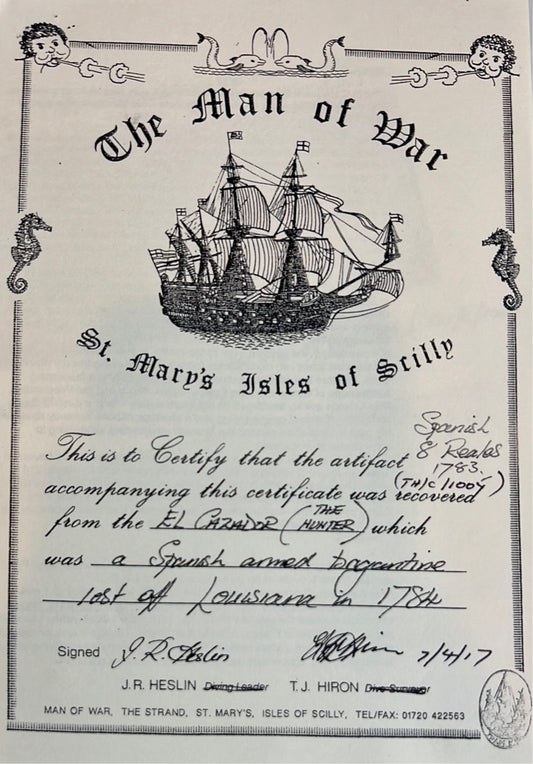 The Man of War
St. Mary's Isles of Scilly
Spanish
8 Reales
1783.
(TH/C/1005)
This is to Certify that the artifact
accompanying this certificate was recovered
from the EL CAZADOR (THE HUNTER) which
was a Spanish armed brigantine
lost off Louisiana in 1784
Signed J.R. Heslin 7/4/17
J.R. HESLIN Diving Leader T.J. HIRON Dive Surveyor
MAN OF WAR, THE STRAND, ST. MARY'S, ISLES OF SCILLY, TEL/FAX: 01720 422563